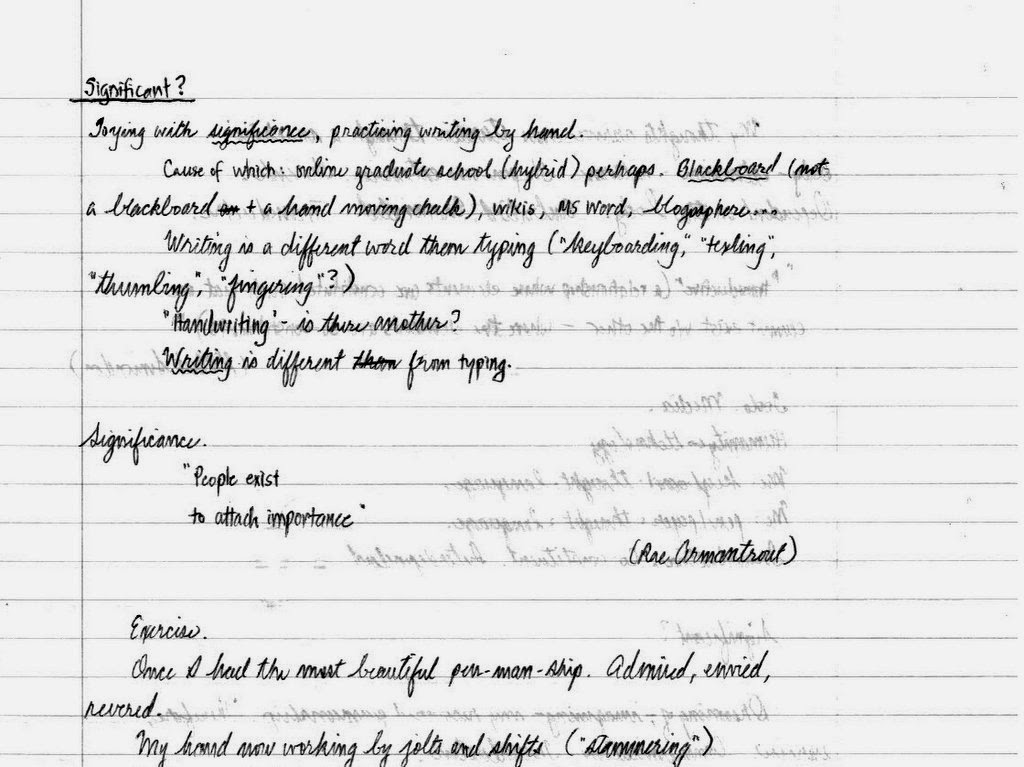 Significant?
Toying with significance, practicing writing by hand.
Cause of which: online graduate school (hybrid) perhaps. Blackboard (not
a blackboard on + a hand moving chalk), wikis, MS Word, blogosphere....
Writing is a different word then typing ("keyboarding," "texting",
"thumbing", "fingering"?)
"Handwriting" - is there another?
Writing is different than from typing.
Significance.
"People exist
to attach importance"
(Rae Armantrout)
Exercise.
Once I had the most beautiful pen-man-ship. Admired, envied,
revered.
My hand now working by jolts and shifts ("stammering")